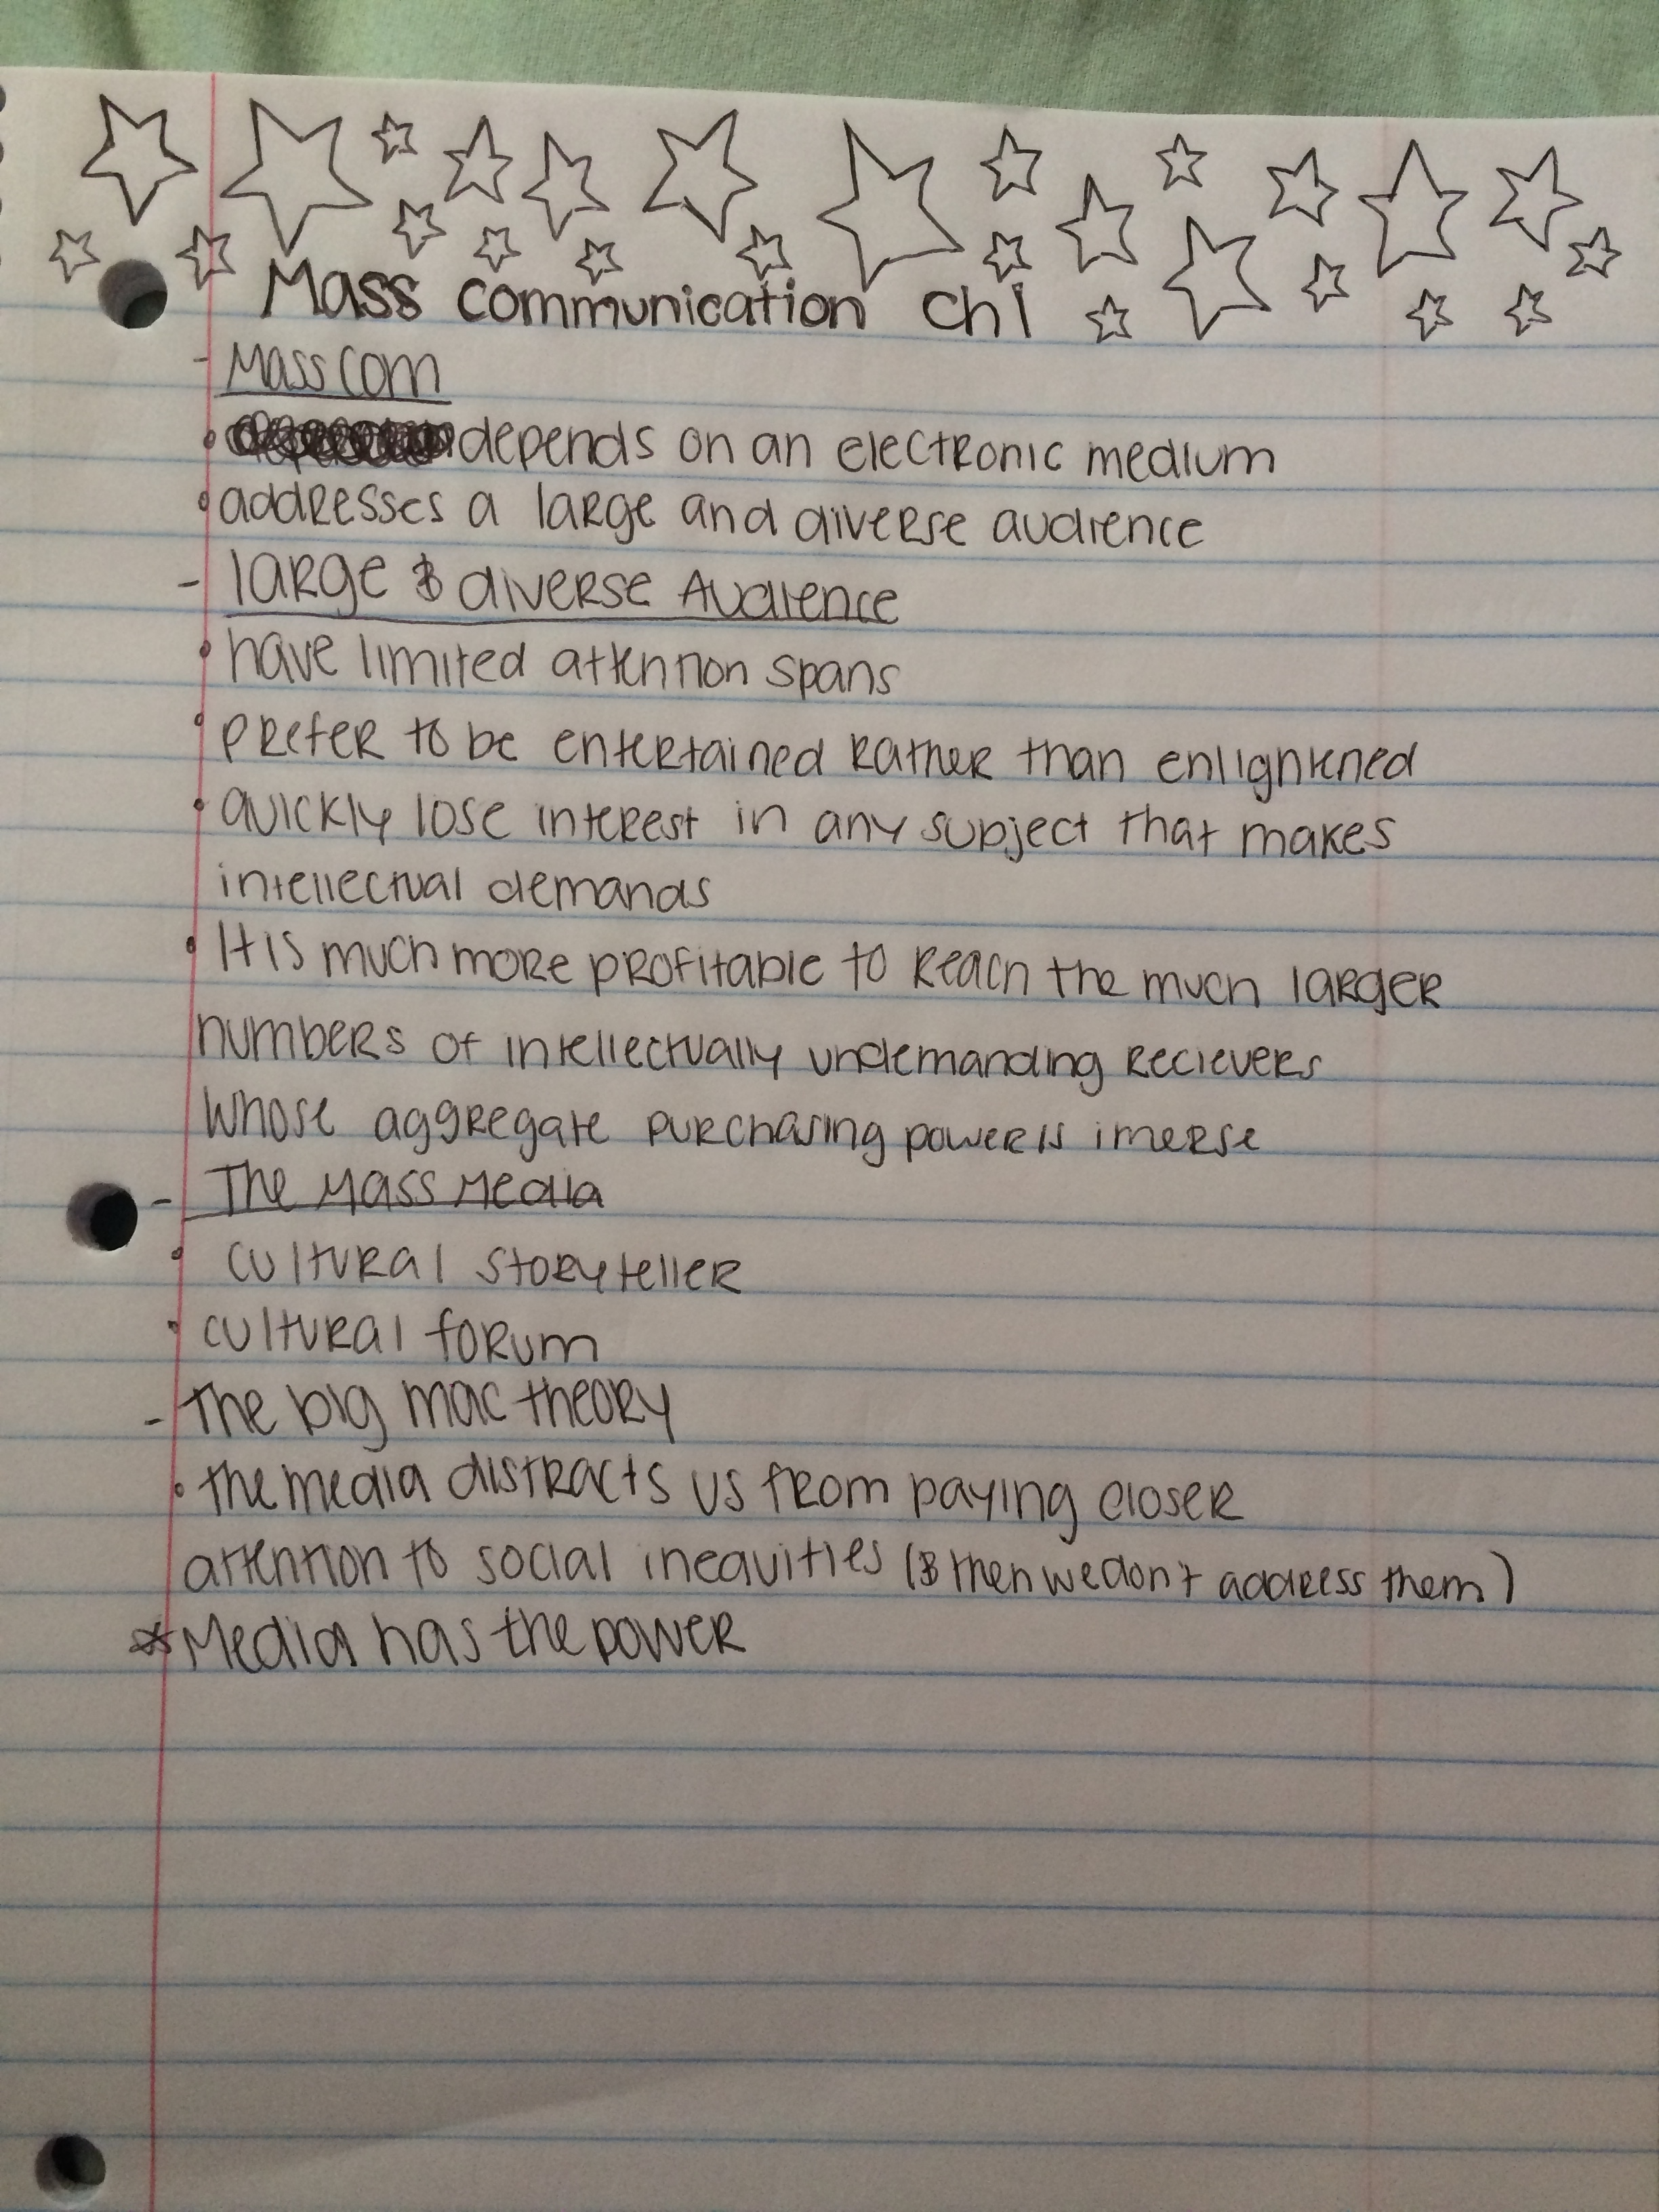 Mass communication Ch 1
- Mass com
• depends on an electronic medium
• addresses a large and diverse audience
- large & diverse Audience
• have limited attention spans
• prefer to be entertained rather than enlightened
• quickly lose interest in any subject that makes
intellectual demands
• It is much more profitable to reach the much larger
numbers of intellectually undemanding recievers
whose aggregate purchasing power is imerse
- The Mass Media
• cultural storyteller
• cultural forum
- The big mac theory
• the media distracts us from paying closer
attention to social inequities (& then we don't address them)
* Media has the power